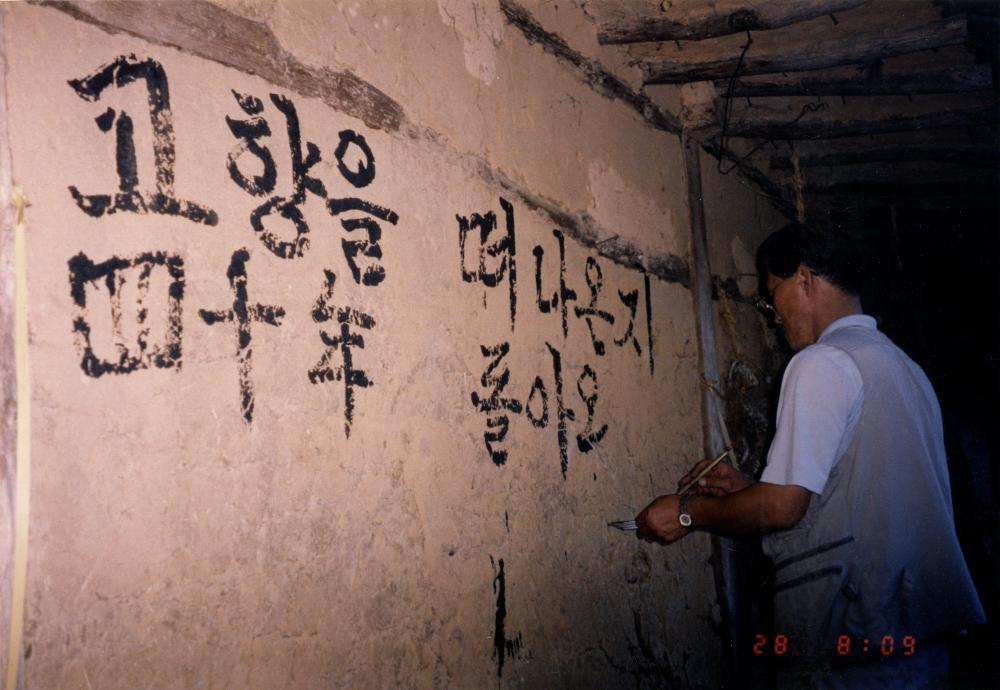 고향을 떠나온지
四十年 돌아오
28 8:09